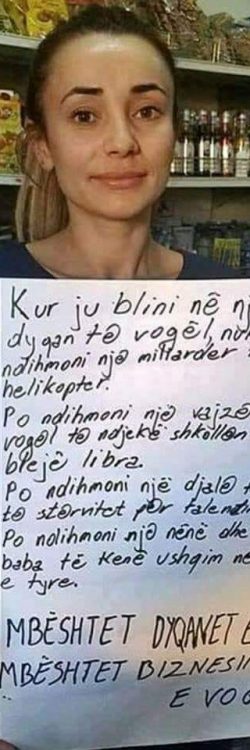 Kur ju blini në një
dyqan të vogël, nuk
ndihmoni një miliarder
helikopter.
Po ndihmoni një vajzë
vogël të ndjekë shkollën
blejë libra.
Po ndihmoni një djalë
të stërvitet për talentin
Po ndihmoni një nënë dhe
baba të kenë ushqim në
e tyre.
MBËSHTET DYQANET E
MBËSHTET BIZNESIN
E VOG